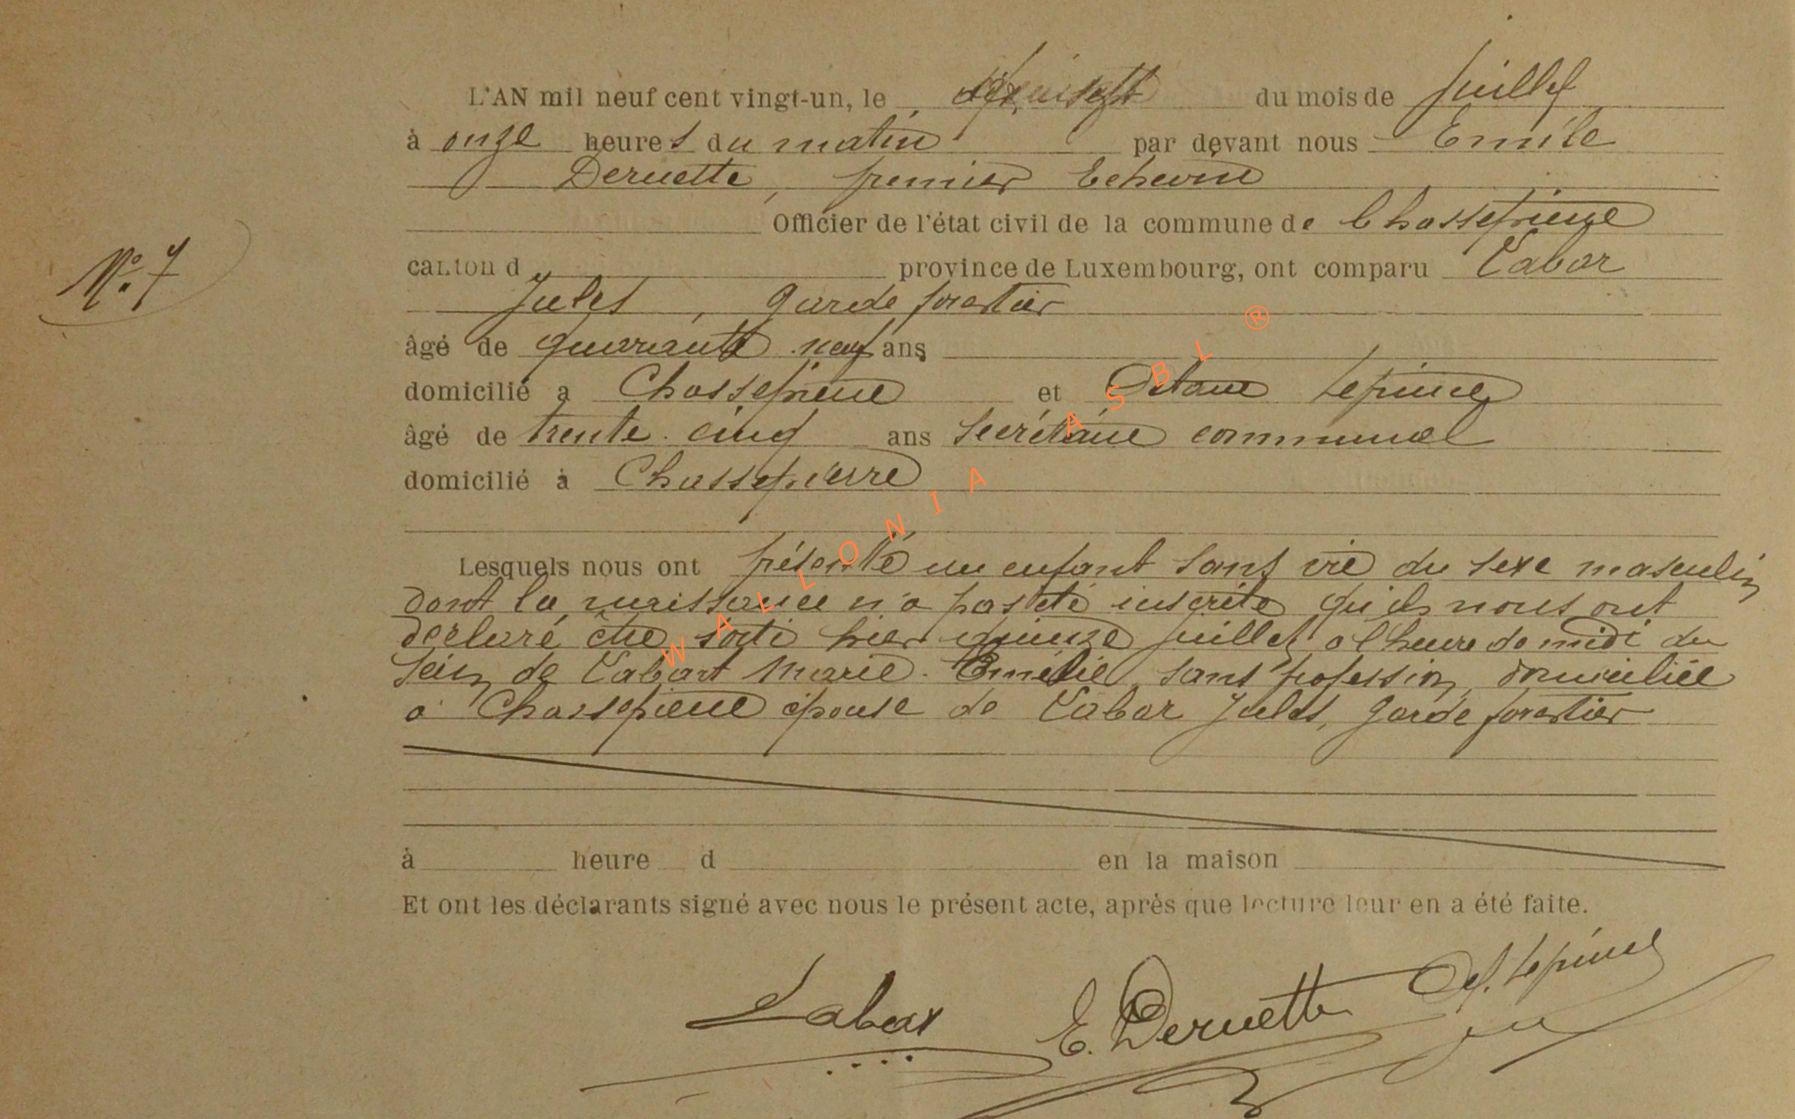 L'AN mil neuf cent vingt-un, le du mois de Juillet
à onze heures du matin par devant nous Emile
Deruette, premier Echevin
Officier de l'état civil de la commune de Chassepierre
N° 7
canton d province de Luxembourg, ont comparu Labar
Jules, garde forestier
âgé de quarante neuf ans
domicilié a Chassepierre et Octave Lepine
âgé de trente cinq ans Secrétaire communal
domicilié à Chassepierre
Lesquels nous ont présenté un enfant sans vie du sexe masculin
dont la naissance n'a pas été inscrite qu'ils nous ont
déclaré être sorti hier quinze Juillet, a l'heure de midi du
sein de Labart Marie Emélie sans profession, domiciliée
a Chassepierre épouse de Labar Jules, garde forestier
à heure d en la maison
Et ont les déclarants signé avec nous le présent acte, après que lecture leur en a été faite.
Labar E. Deruette Lepine
WALLONIA ASBL ®